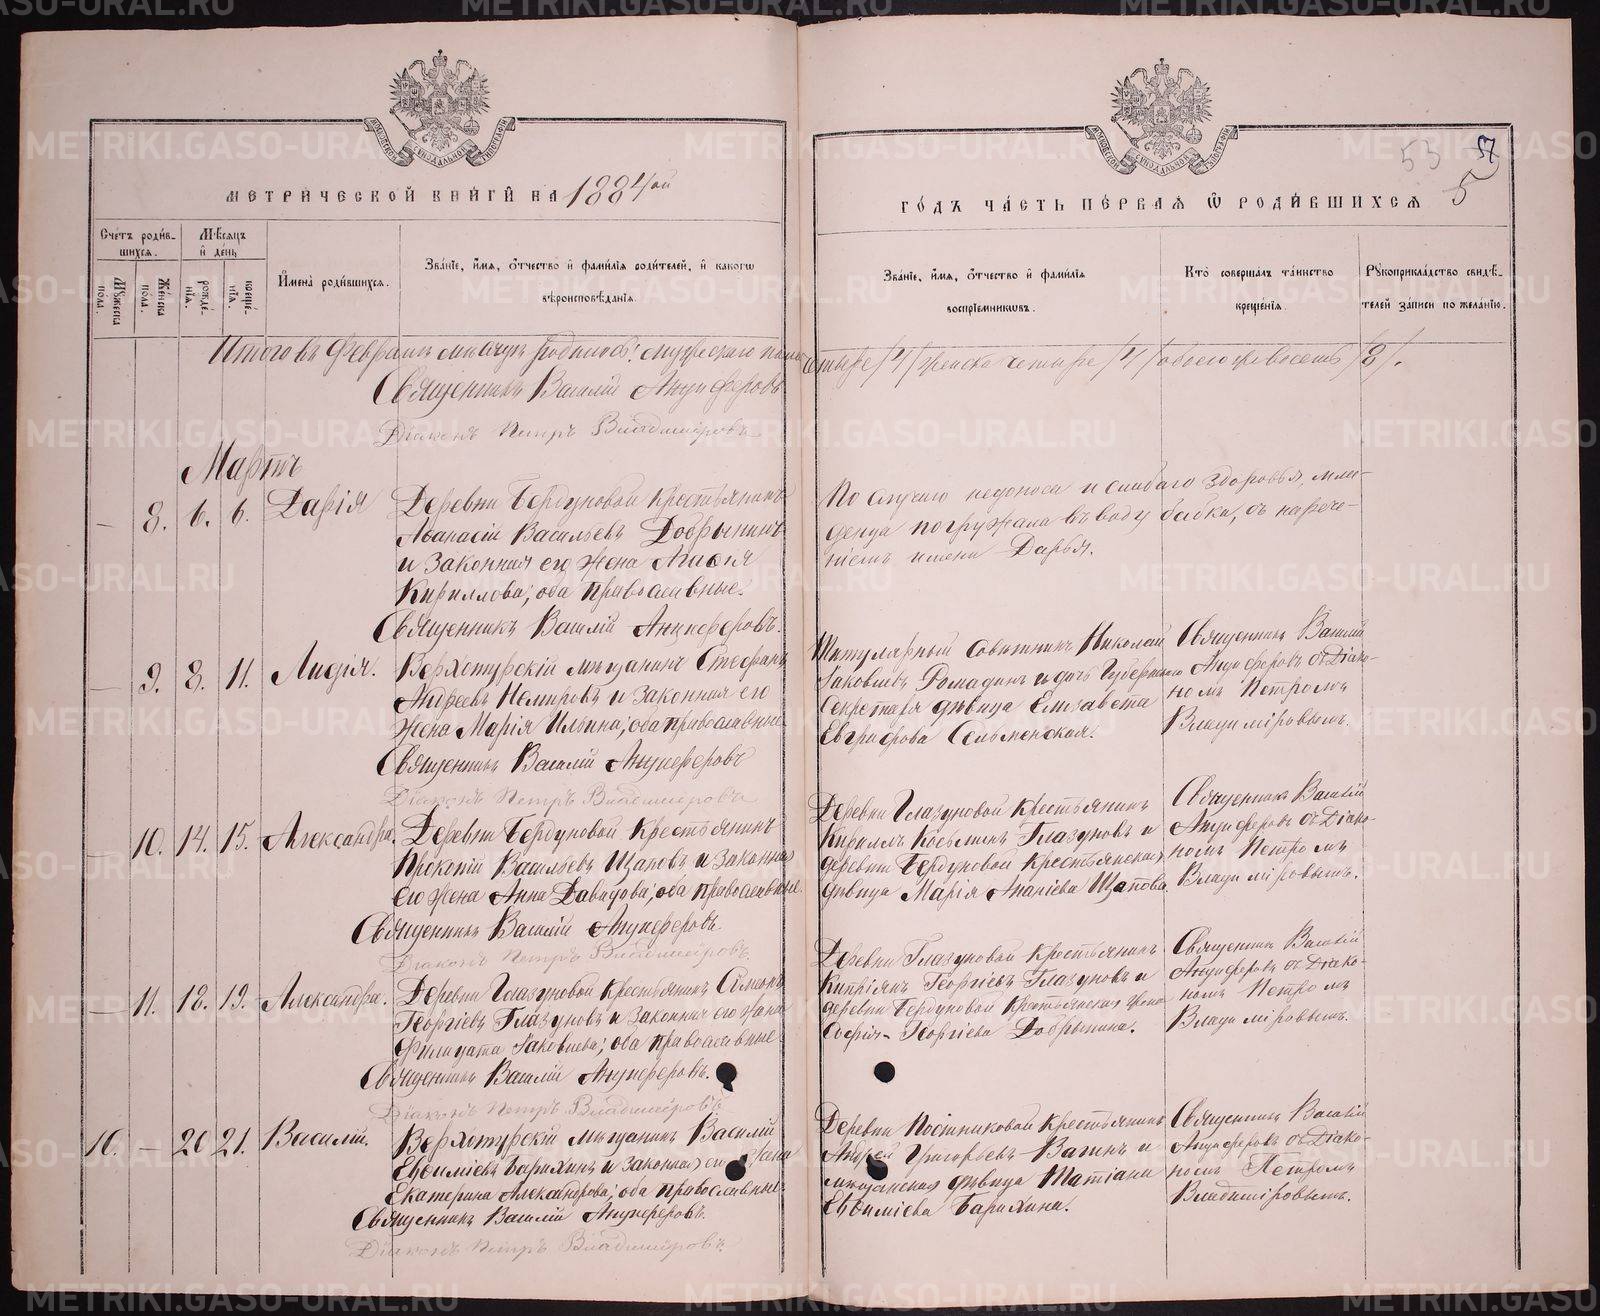 МЕТРИЧЕСКОЙ КНИГИ НА 1884ой
ГОДЪ ЧАСТЬ ПЕРВАЯ Ѡ РОДИВШИХСЯ
53
57
5
Счетъ родив-
шихся.
Мѣсяцъ
и день
Мужеска
пола.
Женска
пола.
рожде-
нія.
креще-
нія.
Имена родившихся.
Званіе, имя, отчество и фамилія родителей, и какогѡ
вѣроисповѣданія.
Званіе, имя, отчество и фамилія
воспріемниковъ.
Кто совершалъ таинство
крещенія.
Рукоприкладство свидѣ-
телей записи по желанію.
Итого въ Февралѣ мѣсяцѣ родилось: мужескаго пола четыре /4/ женска четыре /4/ обоего же восемь /8/.
Священникъ Василій Анцыферовъ
Діаконъ Петръ Владиміровъ
Мартъ
— 8. 6. 6. Дарія
Деревни Бердуновой крестьянинъ
Аѳанасій Васильевъ Добрынинъ
и законная его жена Агаѳія
Кириллова; оба православные.
Священникъ Василій Анцыферовъ.
По случаю недоноса и слабаго здоровья, мла-
денца погружала въ воду бабка, съ нарече-
ніемъ имени Дарья.
— 9. 8. 11. Лидія.
Верхотурскій мѣщанинъ Стефанъ
Андреевъ Немтровъ и законная его
жена Марія Ильина; оба православные
Священникъ Василій Анцыферовъ
Діаконъ Петръ Владиміровъ
Титулярный Совѣтникъ Николай
Іаковлевъ Ромадинъ и дочь Губернскаго
Секретаря дѣвица Елизавета
Евграфова Сельменская.
Священникъ Василій
Анцыферовъ съ Діако-
номъ Петромъ
Владиміровымъ.
— 10. 14. 15. Александра.
Деревни Бердуновой Крестьянинъ
Прокопій Васильевъ Щаповъ и законная
его жена Анна Давидова; оба православные.
Священникъ Василій Анцыферовъ.
Діаконъ Петръ Владиміровъ.
Деревни Глазуновой Крестьянинъ
Кириллъ Косьминъ Глазуновъ и
деревни Бердуновой крестьянская
дѣвица Марія Ананіева Щапова.
Священникъ Василій
Анцыферовъ съ Діако-
номъ Петромъ
Владиміровымъ.
— 11. 18. 19. Александра.
Деревни Глазуновой крестьянинъ Симеонъ
Георгіевъ Глазуновъ и законная его жена
Филицата Іаковлева; оба православные.
Священникъ Василій Анцыферовъ.
Діаконъ Петръ Владиміровъ
Деревни Глазуновой крестьянинъ
Кипріянъ Георгіевъ Глазуновъ и
деревни Бердуновой Крестьянская жена
Софія Георгіева Добрынина.
Священникъ Василій
Анцыферовъ съ Діако-
номъ Петромъ
Владиміровымъ.
10. — 20 21. Василій.
Верхотурскій мѣщанинъ Василій
Евѳиміевъ Барихинъ и законная его жена
Екатерина Александрова; оба православные.
Священникъ Василій Анцыферовъ.
Діаконъ Петръ Владиміровъ.
Деревни Постниковой крестьянинъ
Андрей Григорьевъ Вагинъ и
мѣщанская дѣвица Татіана
Евѳиміева Барихина.
Священникъ Василій
Анцыферовъ съ Діако-
номъ Петромъ
Владиміровымъ.
METRIKI.GASO-URAL.RU